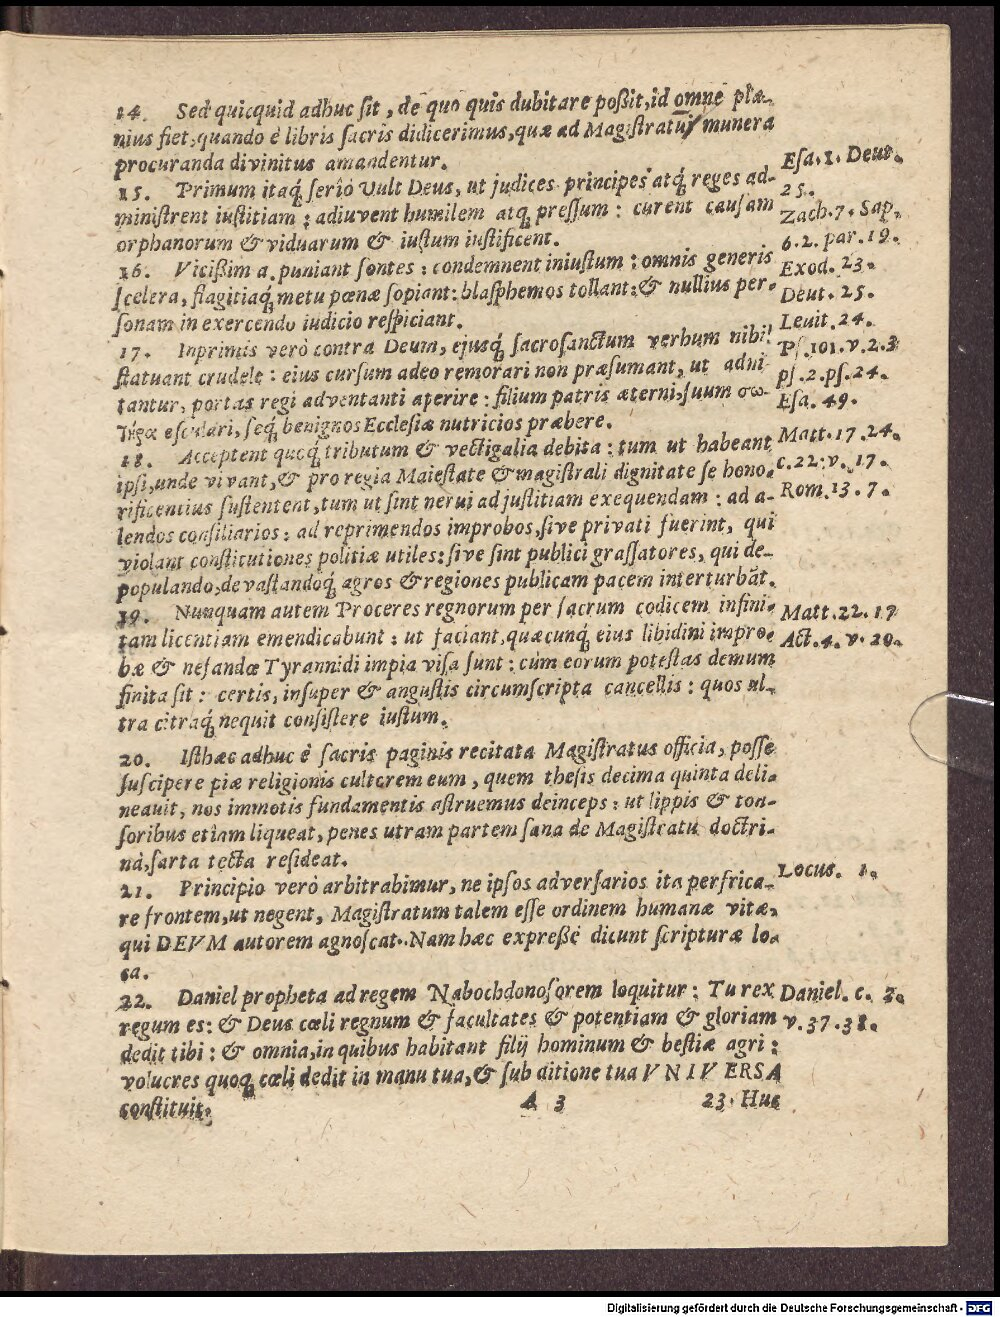 14. Sed quicquid adhuc sit, de quo quis dubitare poßit, id omne plæ-
nius fiet, quando è libris sacris didicerimus, quæ ad Magistratus munera
procuranda divinitus amandentur.
15. Primum itaq́ seriò vult Deus, ut judices principes atq́ reges ad-
ministrent iustitiam: adiuvent humilem atq́ pressum: curent causam
orphanorum & viduarum & iustum iustificent.
Esa. 1. Deut.
25.
Zach. 7. Sap.
6. 2. par. 19.
16. Vicißim a. puniant sontes: condemnent iniustum: omnis generis
scelera, flagitiaq́ metu pœnæ sopiant: blasphemos tollant: & nullius per-
sonam in exercendo iudicio respiciant.
Exod. 23.
Deut. 25.
Leuit. 24.
17. Inprimis verò contra Deum, ejusq́ sacrosanctum verbum nihil
statuant crudele: eius cursum adeo remorari non præsumant, ut adni-
tantur, portas regi adventanti aperire: filium patris æterni, suum σω-
τῆρα esculari, seq́ benignos Ecclesiæ nutricios præbere.
Ps. 101. v. 2. 3
ps. 2. ps. 24.
Esa. 49.
18. Acceptent quoq́ tributum & vectigalia debita: tum ut habeant
ipsi, unde vivant, & pro regia Maiestate & magistrali dignitate se hono-
rificentius sustentent, tum ut sint nerui ad justitiam exequendam: ad a-
lendos consiliarios: ad reprimendos improbos, sive privati fuerint, qui
violant constitutiones politiæ utiles: sive sint publici grassatores, qui de-
populando, devastandoq́ agros & regiones publicam pacem interturbāt.
Matt. 17. 24.
c. 22. v. 17.
Rom. 13. 7.
19. Nunquam autem Proceres regnorum per sacrum codicem infini-
tam licentiam emendicabunt: ut faciant, quæcunq́ eius libidini impro-
bæ & nefandæ Tyrannidi impia visa sunt: cúm eorum potestas demum
finita sit: certis, insuper & angustis circumscripta cancellis: quos ul-
tra citraq́ nequit consistere iustum.
Matt. 22. 17
Act. 4. v. 20.
20. Isthæc adhuc è sacris paginis recitata Magistratus officia, posse
suscipere piæ religionis cultorem eum, quem thesis decima quinta deli-
neauit, nos immotis fundamentis astruemus deinceps: ut lippis & ton-
soribus etiam liqueat, penes utram partem sana de Magistratu doctri-
na, sarta tecta resideat.
21. Principio verò arbitrabimur, ne ipsos adversarios ita perfrica-
re frontem, ut negent, Magistratum talem esse ordinem humanæ vitæ,
qui DEVM autorem agnoscat. Nam hæc expreßè dicunt scripturæ lo-
ca.
Locus. 1.
22. Daniel propheta ad regem Nabochdonosorem loquitur: Tu rex
regum es: & Deus cœli regnum & facultates & potentiam & gloriam
dedit tibi: & omnia, in quibus habitant filij hominum & bestiæ agri:
volucres quoq́ cœli dedit in manu tua, & sub ditione tua VNIVERSA
constituit.
Daniel. c. 2.
v. 37. 38.
A 3
23. Huc
Digitalisierung gefördert durch die Deutsche Forschungsgemeinschaft - DFG